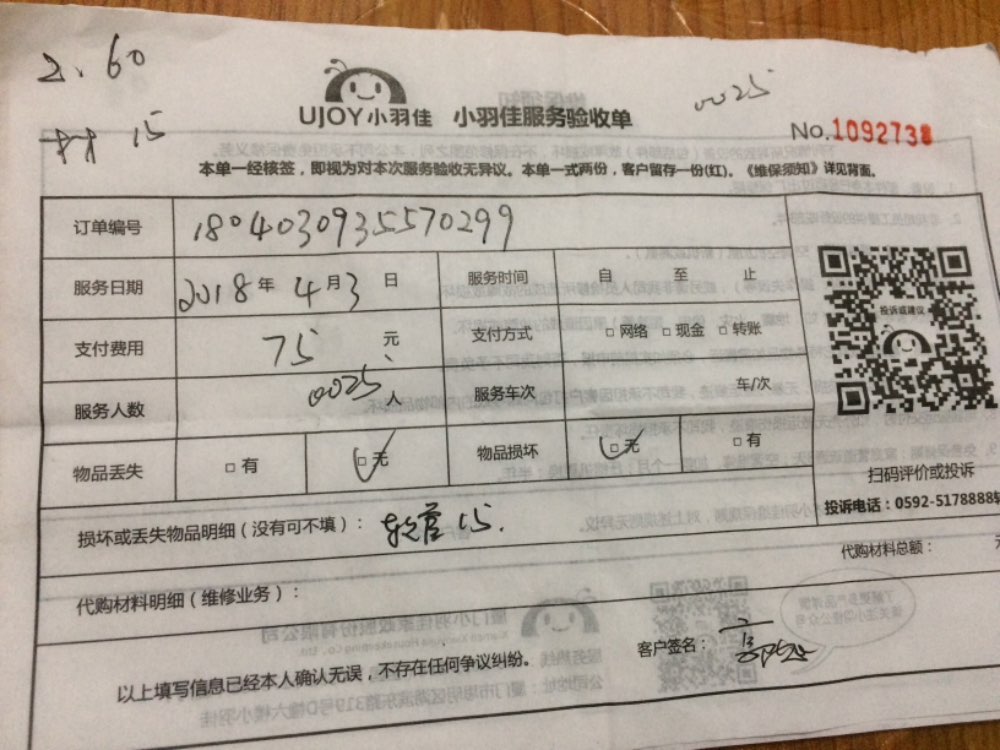 2、60
15
0025
UJOY小羽佳 小羽佳服务验收单
No.1092738
本单一经核签，即视为对本次服务验收无异议。本单一式两份，客户留存一份(红)。《维保须知》详见背面。
订单编号 180403093557​0299
服务日期 2018年 4月3日 服务时间 自 至 止
支付费用 75 元 支付方式 □网络 □现金 □转账
服务人数 0025 人 服务车次 车/次
物品丢失 □有 □无 物品损坏 □无 □有
投诉或建议
扫码评价或投诉
投诉电话：0592-5178888转
损坏或丢失物品明细（没有可不填）： 软管15.
代购材料总额： 元
代购材料明细（维修业务）：
客户签名：
以上填写信息已经本人确认无误，不存在任何争议纠纷。